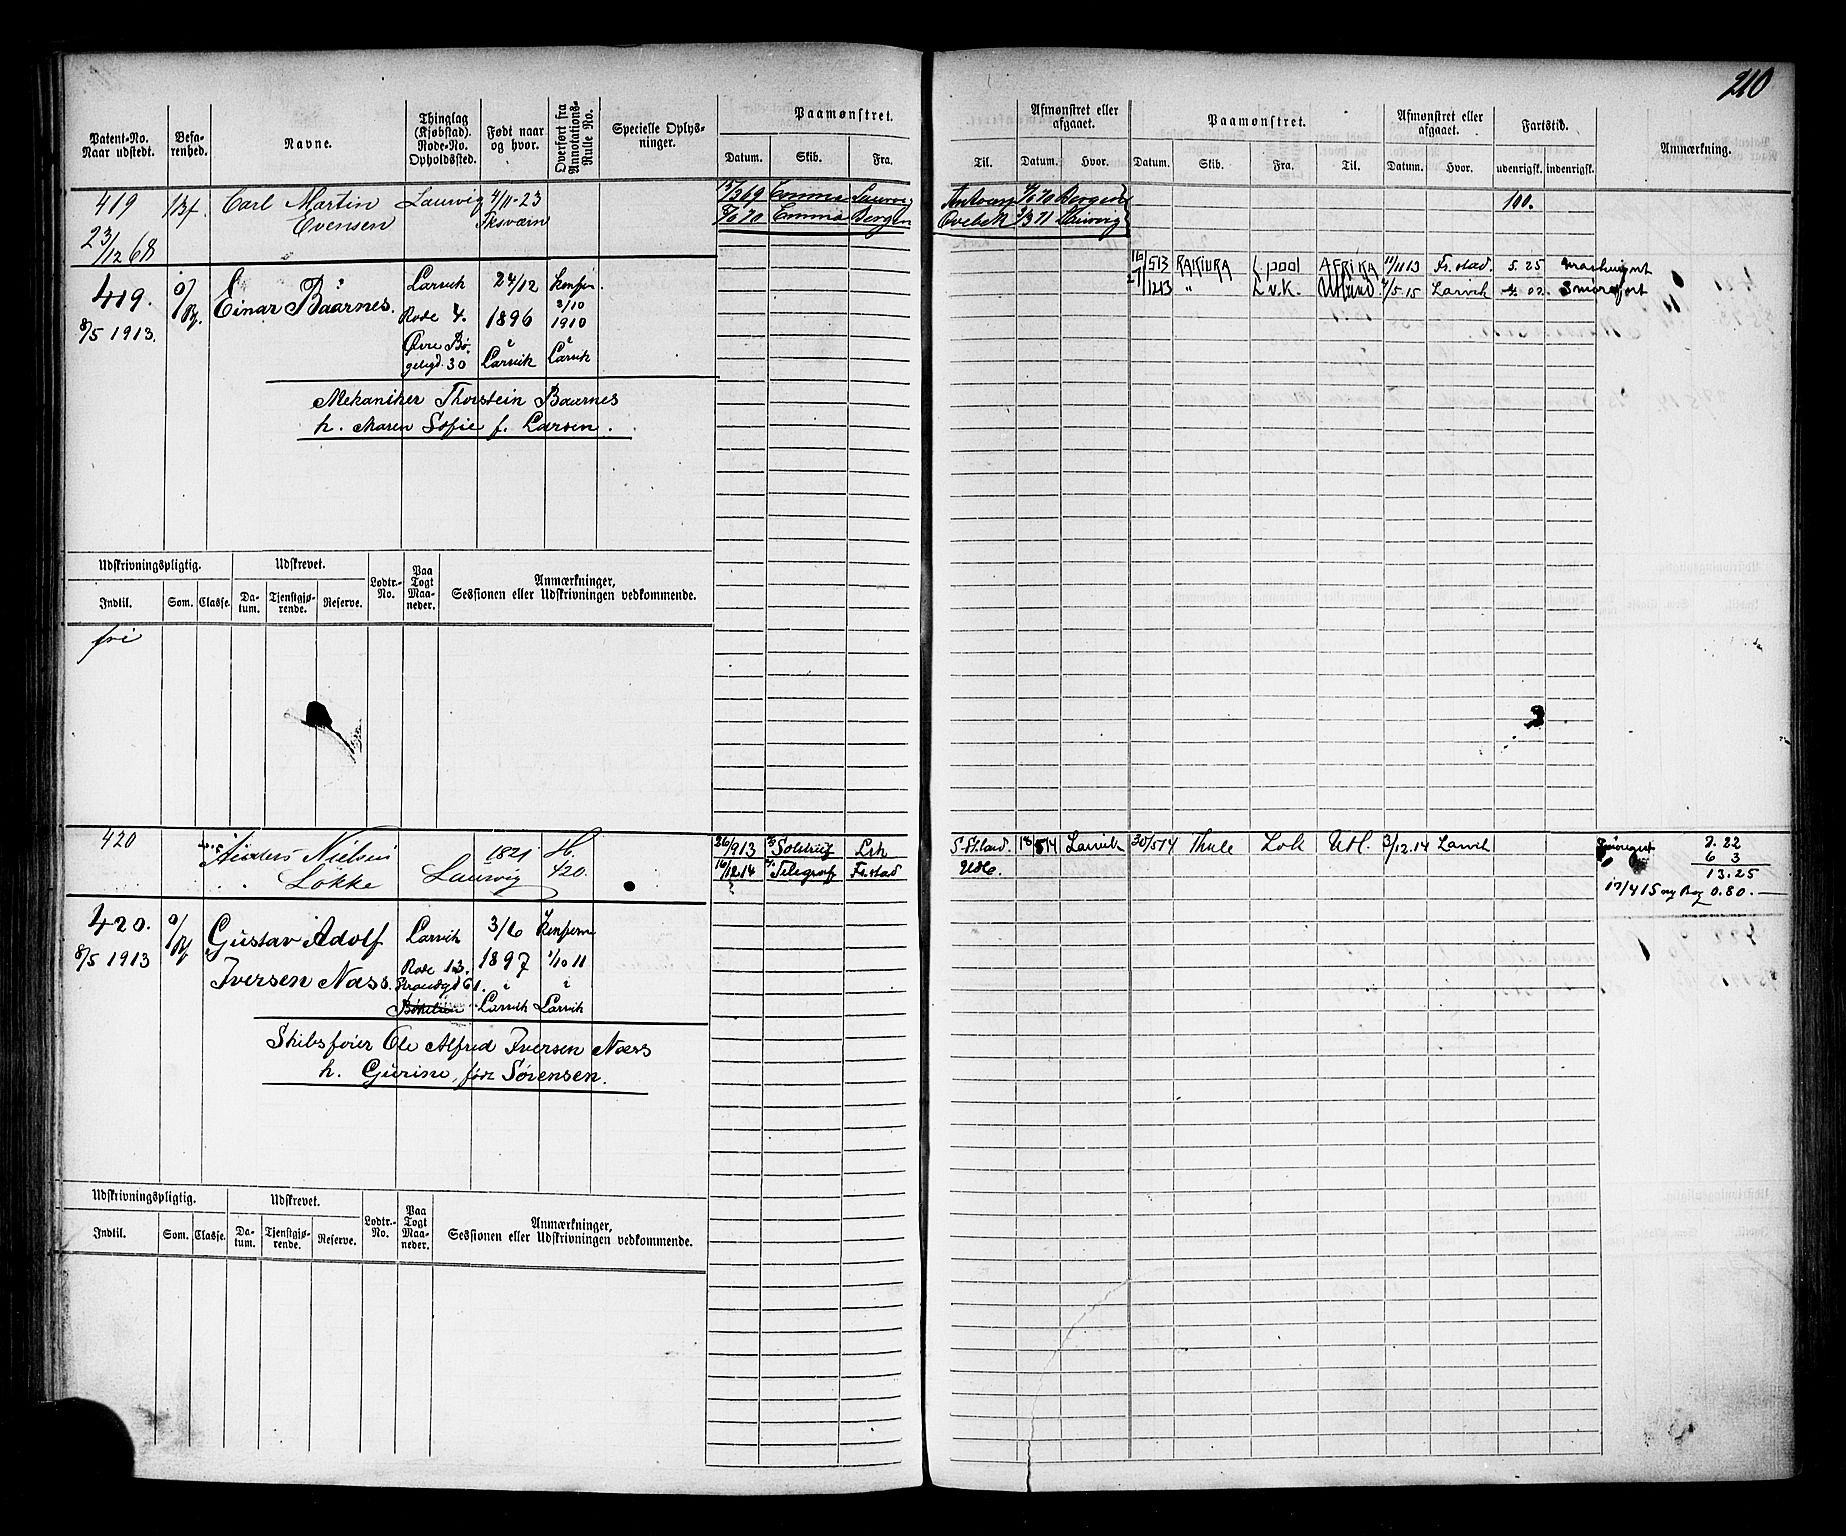 210
Patent-No. Naar udstedt.
Befarenhed.
Navne.
Thinglag (Kjøbstad). Rode-No. Opholdssted.
Født naar og hvor.
Overført fra Annotations-Rulle No.
Specielle Oplysninger.
Paamønstret.
Datum. Skib. Fra.
Til.
Afmønstret eller afgaaet.
Datum. Hvor.
Paamønstret.
Datum. Skib. Fra. Til.
Afmønstret eller afgaaet.
Datum. Hvor.
Fartstid.
udenrigsk. indenrigsk.
Anmærkning.
419 Carl Martin Laurvig 4/11-23 15/3 69 Emma Laurvig 100.
Evensen 70 Emma Bergen 3 71
23/12 68
16/5 13 RAKIURA L.pool AFRIKA 11/11 13 Fr.stad. 5. 25
419. Einar Baarnes. Larvik 24/12 12 13 " 5 15 Larvik 02.
8/5 1913. Rode 4. 1896 1910
Øvre Bø- i
geligd. 30 Larvik Larvik
Mekaniker Thorstein Baarnes
h. Maren Sofie f. Larsen.
Udskrivningspligtig. Udskrevet. Lodtr.-No. Paa Togt Maaneder. Anmærkninger, Sessionen eller Udskrivningen vedkommende.
Indtil. Som. Classe. Datum. Tjenstgjørende. Reserve.
fri
420 Anders Nielsen 1821 H. 26/9 13 Solstreif Lrk 18/5 14 Larvik 30/5 14 Thule Utl. 3/12. 14 Larvik 22
Løkke Laurvig 420. 16/12.14 Telegraf Fr.stad Utl. 6 3
13.25
17/4 15 ny 0.80.
420. Gustav Adolf Larvik 3/6
8/5 1913 Iversen Næss. Rode 13. 1897 1/10 11
Strandgd 61. i i
Larvik Larvik
Skibsfører Ole Alfred Iversen Næss
h. Gurine, født Sørensen.
Udskrivningspligtig. Udskrevet. Lodtr.-No. Paa Togt Maaneder. Anmærkninger, Sessionen eller Udskrivningen vedkommende.
Indtil. Som. Classe. Datum. Tjenstgjørende. Reserve.